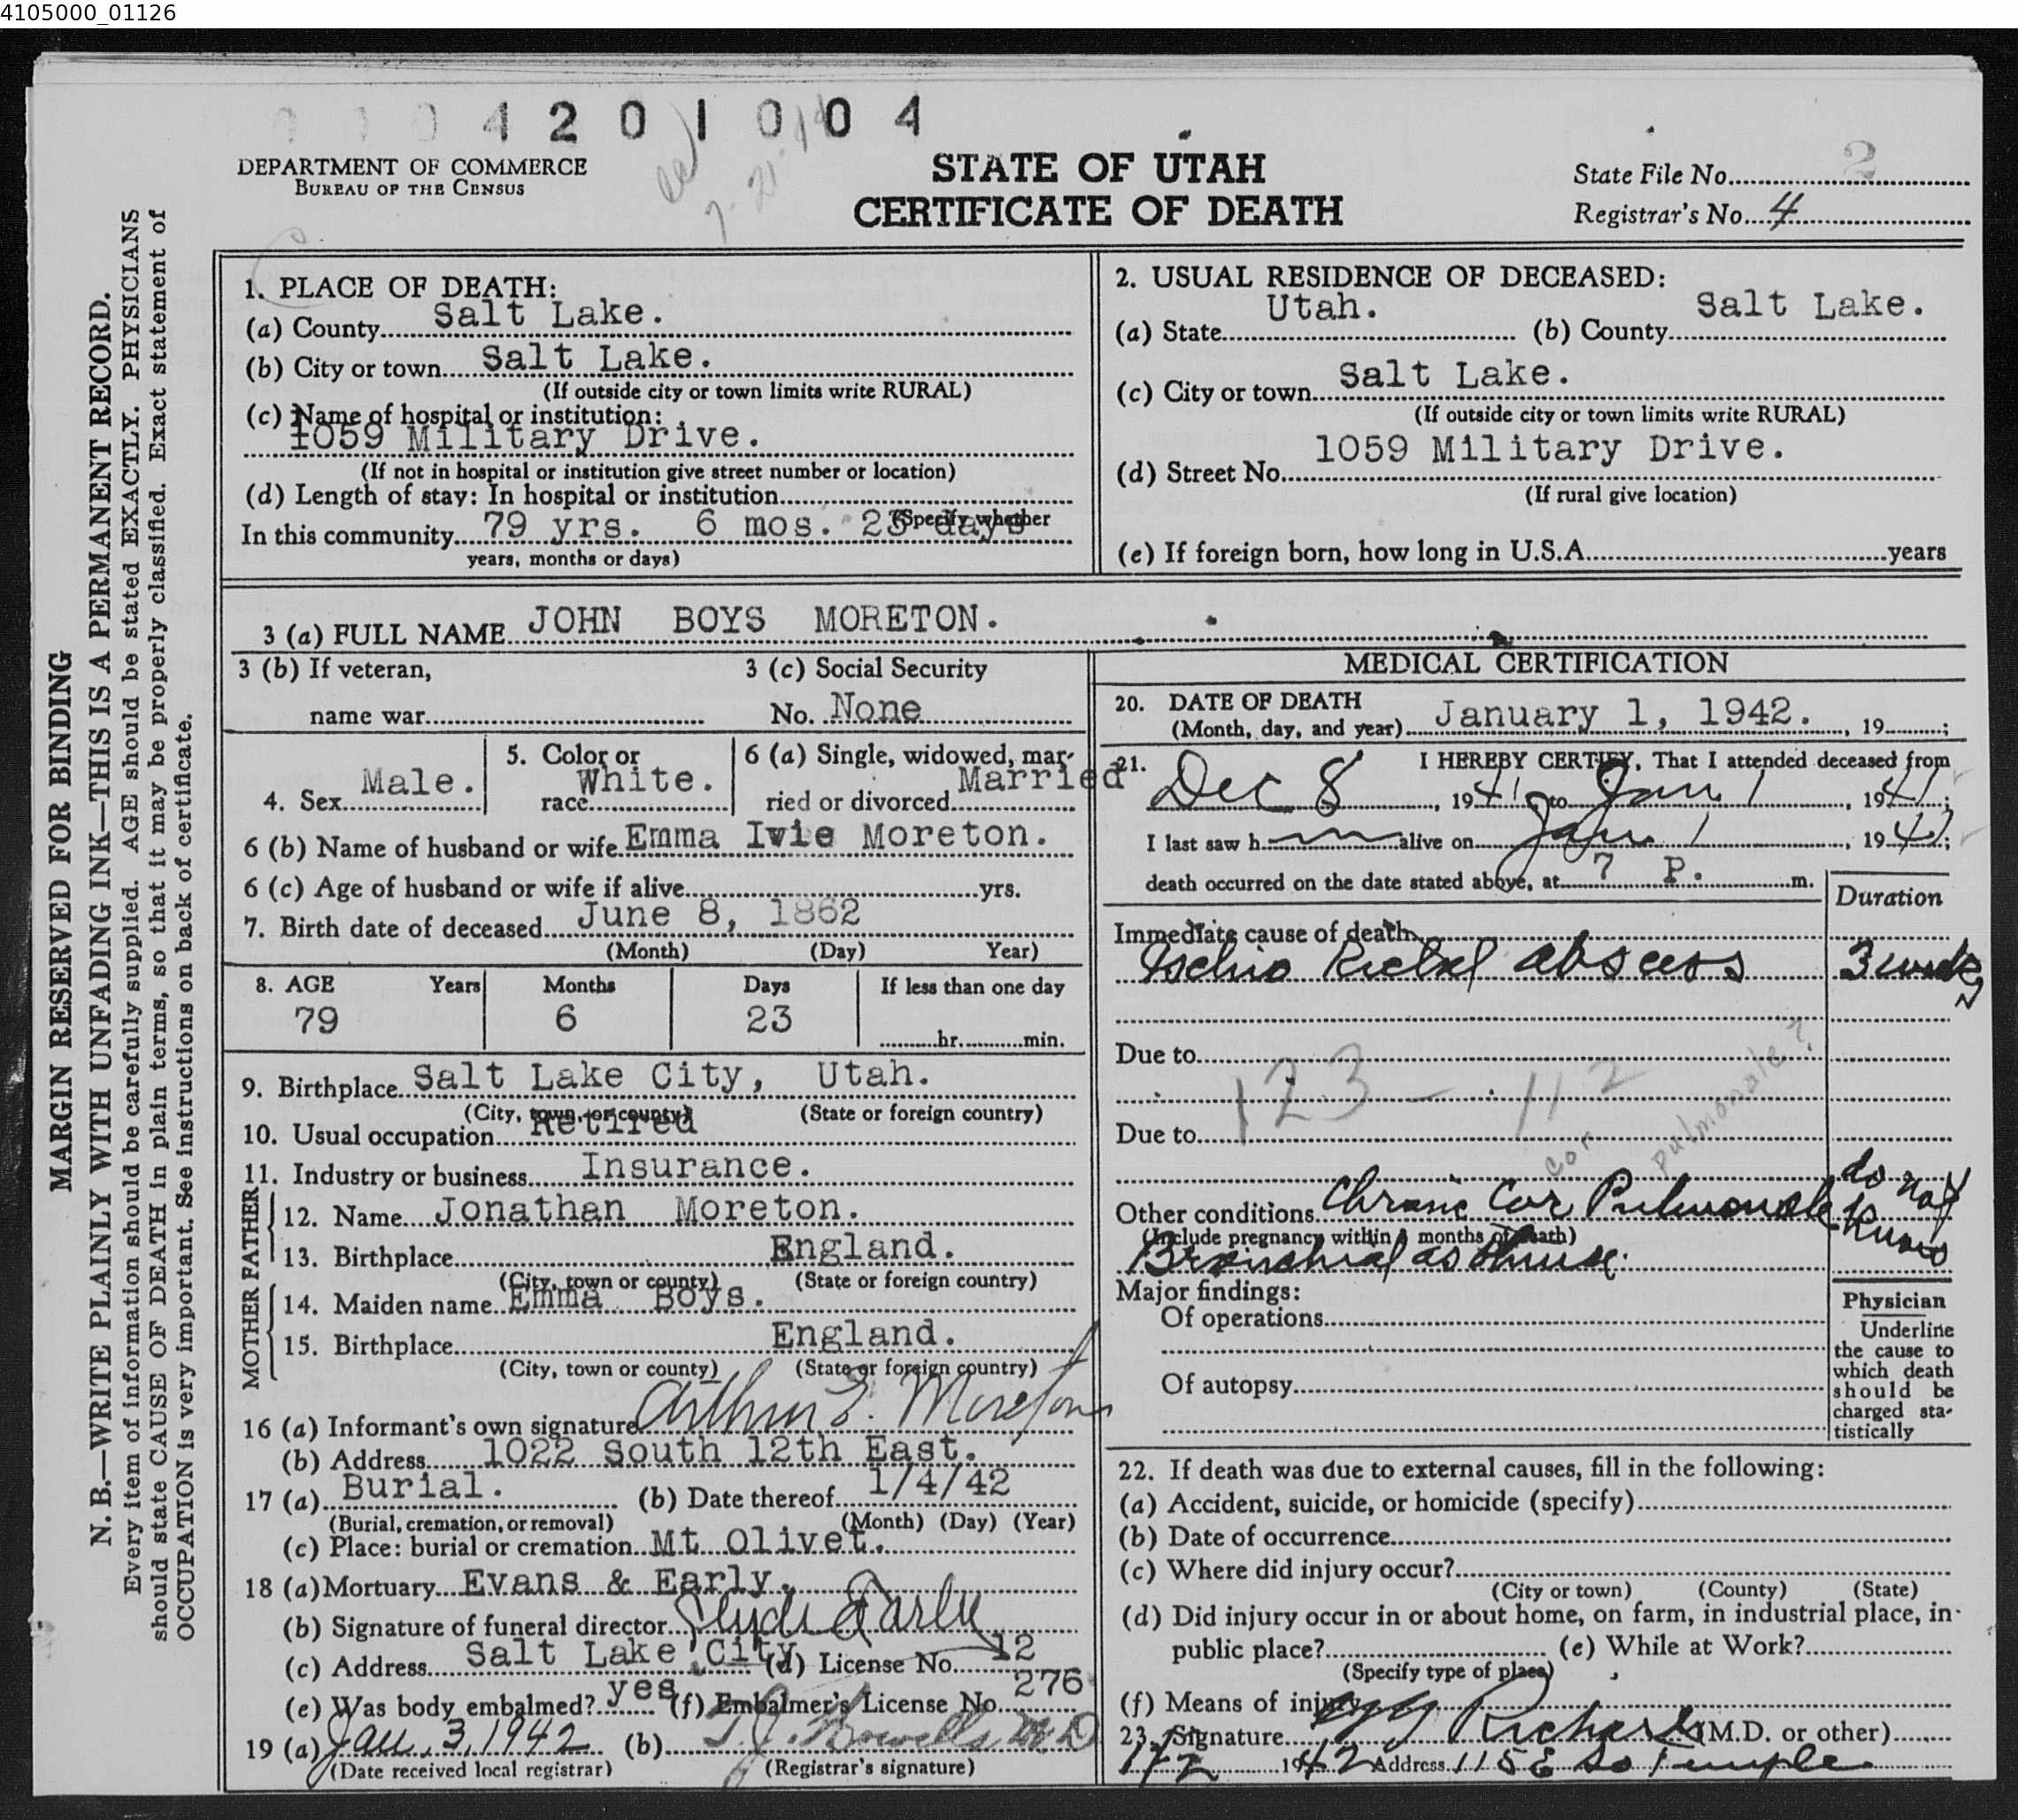 4105000_01126
4 2 0 1 0 0 4
DEPARTMENT OF COMMERCE
BUREAU OF THE CENSUS
STATE OF UTAH
CERTIFICATE OF DEATH
State File No. 2
Registrar's No. 4
MARGIN RESERVED FOR BINDING
N. B.—WRITE PLAINLY WITH UNFADING INK—THIS IS A PERMANENT RECORD.
Every item of information should be carefully supplied. AGE should be stated EXACTLY. PHYSICIANS
should state CAUSE OF DEATH in plain terms, so that it may be properly classified. Exact statement of
OCCUPATION is very important. See instructions on back of certificate.
1. PLACE OF DEATH:
(a) County Salt Lake.
(b) City or town Salt Lake.
(If outside city or town limits write RURAL)
(c) Name of hospital or institution:
1059 Military Drive.
(If not in hospital or institution give street number or location)
(d) Length of stay: In hospital or institution
In this community 79 yrs. 6 mos. 23 days (Specify whether
years, months or days)
2. USUAL RESIDENCE OF DECEASED:
(a) State Utah. (b) County Salt Lake.
(c) City or town Salt Lake.
(If outside city or town limits write RURAL)
(d) Street No. 1059 Military Drive.
(If rural give location)
(e) If foreign born, how long in U.S.A. years
3 (a) FULL NAME JOHN BOYS MORETON.
3 (b) If veteran,
name war
3 (c) Social Security
No. None
4. Sex Male.
5. Color or
race White.
6 (a) Single, widowed, mar-
ried or divorced Married
6 (b) Name of husband or wife Emma Ivie Moreton.
6 (c) Age of husband or wife if alive yrs.
7. Birth date of deceased June 8, 1862
(Month) (Day) Year)
8. AGE Years Months Days If less than one day
79 6 23 hr. min.
9. Birthplace Salt Lake City, Utah.
(City, town, or county) (State or foreign country)
10. Usual occupation Retired
11. Industry or business Insurance.
FATHER
12. Name Jonathan Moreton.
13. Birthplace England.
(City, town or county) (State or foreign country)
MOTHER
14. Maiden name Emma Boys.
15. Birthplace England.
(City, town or county) (State or foreign country)
16 (a) Informant's own signature Arthur E. Moreton
(b) Address 1022 South 12th East.
17 (a) Burial. (b) Date thereof 1/4/42
(Burial, cremation, or removal) (Month) (Day) (Year)
(c) Place: burial or cremation Mt Olivet.
18 (a) Mortuary Evans & Early.
(b) Signature of funeral director Clyde Early
(c) Address Salt Lake City (d) License No. 12
(e) Was body embalmed? yes (f) Embalmer's License No. 276
19 (a) Jan. 3, 1942 (b) T. J. Howells MD
(Date received local registrar) (Registrar's signature)
MEDICAL CERTIFICATION
20. DATE OF DEATH
(Month, day, and year) January 1, 1942. , 19 ;
21. I HEREBY CERTIFY, That I attended deceased from
Dec 8 , 1941 to Jan 1 , 1941;
I last saw h m alive on Jan 1 , 1941;
death occurred on the date stated above, at 7 P. m.
Duration
Immediate cause of death
Ischio Rectal abscess 3 weeks
Due to
123 - 112
Due to
cor pulmonale?
Other conditions Chronic Cor Pulmonale do not know
(Include pregnancy within 3 months of death)
Bronchial asthma.
Major findings:
Of operations
Of autopsy
Physician
Underline
the cause to
which death
should be
charged sta-
tistically
22. If death was due to external causes, fill in the following:
(a) Accident, suicide, or homicide (specify)
(b) Date of occurrence
(c) Where did injury occur?
(City or town) (County) (State)
(d) Did injury occur in or about home, on farm, in industrial place, in
public place? (e) While at Work?
(Specify type of place)
(f) Means of injury
23. Signature Richards (M.D. or other)
1/2 1942 Address 115 E So Temple